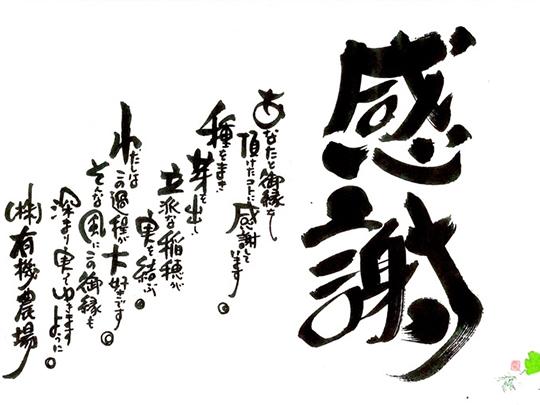 感謝
あなたと御縁を
頂けたことに感謝してます
種をまき
芽を出し
立派な稲穂が
実を結ぶ。
わたしは
この過程が大好きです。
そんな風にこの御縁も
深まり実ってゆきます
ように。
(株)有機農場